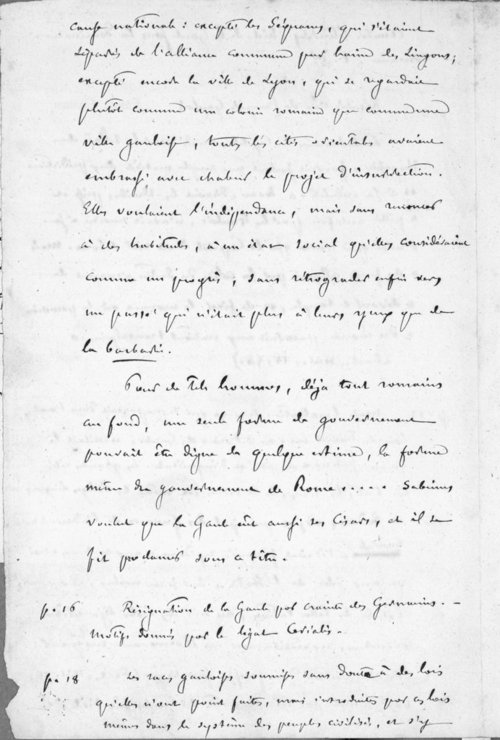 cause nationale : excepté les Séquanes, qui s'étaient
séparés de l'alliance commune par haine des Lingons ;
excepté encore la ville de Lyon, qui se regardait
plutôt comme une colonie romaine que comme une
ville gauloise, toutes les cités orientales avaient
embrassé avec chaleur le projet d'insurrection.
Elles voulaient l'indépendance, mais sans renoncer
à des habitudes, à un état social qu'elles considéraient
comme un progrès, sans rétrograder enfin vers
un passé qui n'était plus à leurs yeux que de
la barbarie.
Pour de tels hommes, déjà tout romains
au fond, une seule forme de gouvernement
pouvait être digne de quelque estime, la forme
même du gouvernement de Rome..... Sabinus
voulut que la Gaule eût aussi ses Césars, et il se
fit proclamer sous ce titre.
p. 16 Résignation de la Gaule par crainte des Germains. -
Motifs donnés par le légat Cerialis. -
p. 18 Les races gauloises soumises sans doute à des lois
qu'elles n'ont point faites, mais introduites par ces lois
mêmes dans le système des peuples civilisés, et s'y